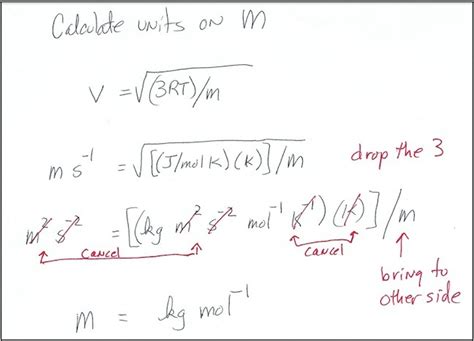 Calculate units on m
V = √(3RT)/m
m s⁻¹ = √[(J/mol K)(K)]/m drop the 3
m² s⁻² = [(kg m² s⁻² mol⁻¹ K⁻¹)(K)]/m
cancel cancel
bring to
other side
m = kg mol⁻¹